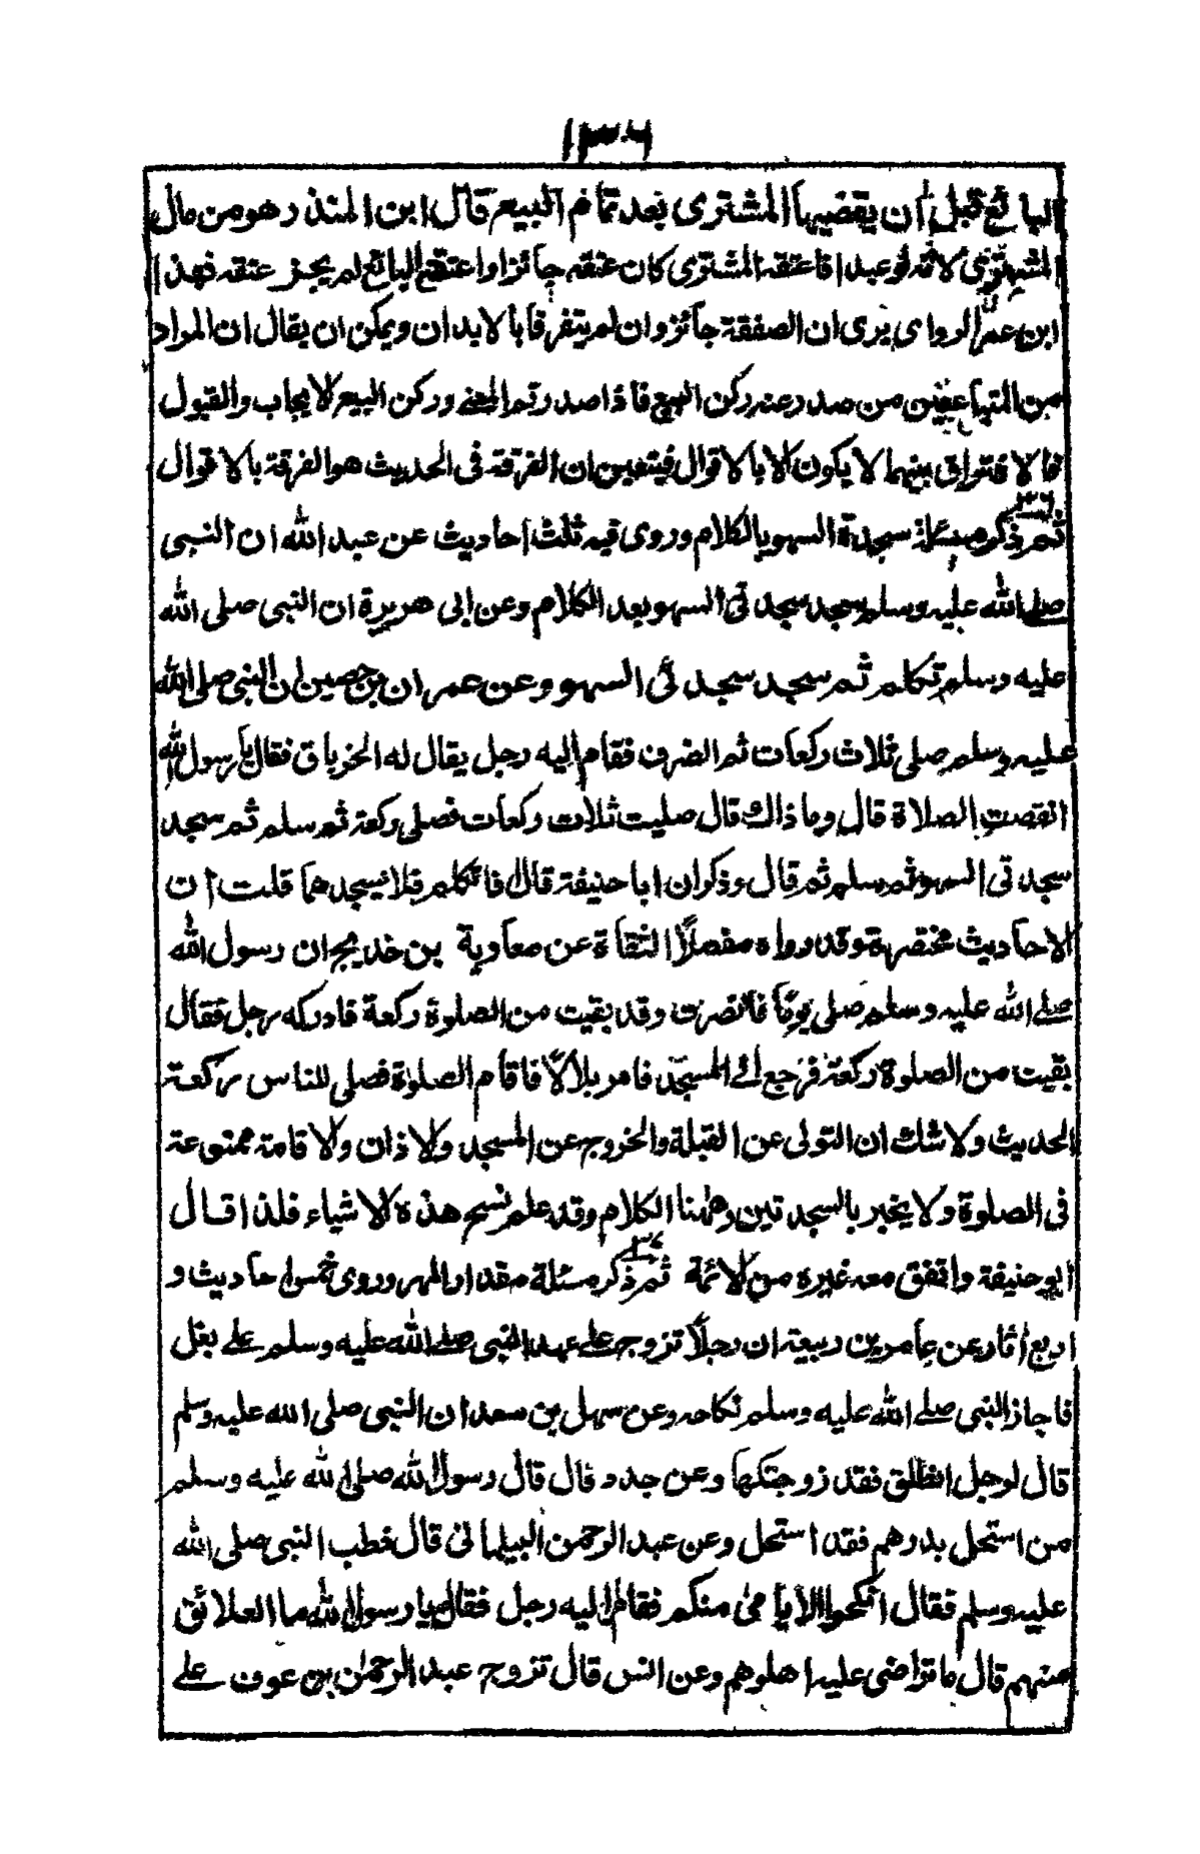 ١٣٠٦
البائع قبل ان يقضيها المشترى بعد تمام البيع قال ابن المنذر هو من مال
المشترى لانه لو عبدا فاعتقه المشترى كان عتقه جائزا واعتقه البائع لم يجز عتقه فهذا
ابن عمر الراوى يرى ان الصفقة جائز وان لم يتفرقا بالابدان ويمكن ان يقال ان المراد
من المتبايعين من صدر عنه ركن البيع فاذا صدر تم المعنى وركن البيع الايجاب والقبول
فالافتراق بينهما لا يكون الا بالاقوال فيتعين ان الفرقة فى الحديث هو الفرقة بالاقوال
ثم ذكر مسئلة سجدة السهو بالكلام وروى فيه ثلث احاديث عن عبد الله ان النبى
صلى الله عليه وسلم سجد سجدتى السهو بعد الكلام وعن ابى هريرة ان النبى صلى الله
عليه وسلم تكلم ثم سجد سجدتى السهو وعن عمران بن حصين ان النبى صلى الله
عليه وسلم صلى ثلاث ركعات ثم انصرف فقام اليه رجل يقال له الخرباق فقال يا رسول الله
انقصت الصلاة قال وما ذاك قال صليت ثلاث ركعات فصلى ركعة ثم سلم ثم سجد
سجدتى السهو ثم سلم ثم قال وذكر ان ابا حنيفة قال اذا تكلم فلا يسجدهما قلت ان
الاحاديث مختصرة وقد رواه مفصلا الثقاة عن معاوية بن خديج ان رسول الله
صلى الله عليه وسلم صلى يوما فانصرف وقد بقيت من الصلوة ركعة فادركه رجل فقال
بقيت من الصلوة ركعة فرجع الى المسجد فامر بلالا فاقام الصلوة فصلى للناس ركعة
الحديث ولا شك ان التولى عن القبلة والخروج عن المسجد والاذان والاقامة ممنوعة
فى الصلوة ولا يخبر بالسجدتين وههنا الكلام وقد علم نسخ هذه الاشياء فلذا قال
ابو حنيفة واتفق معه غيره من الائمة ثم ذكر مسئلة مقدار المهر وروى خمس احاديث و
اربع اثار عن عامر بن ربيعة ان رجلا تزوج على عهد النبى صلى الله عليه وسلم على نعل
فاجاز النبى صلى الله عليه وسلم نكاحه وعن سهل بن سعد ان النبى صلى الله عليه وسلم
قال لرجل انطلق فقد زوجتكها وعن جده قال قال رسول الله صلى الله عليه وسلم
من استحل بدرهم فقد استحل وعن عبد الرحمن البيلمانى قال خطب النبى صلى الله
عليه وسلم فقال انكحوا الايامى منكم فقام اليه رجل فقال يا رسول الله ما العلائق
منهم قال ما تراضى عليه اهلوهم وعن انس قال تزوج عبد الرحمن بن عوف على